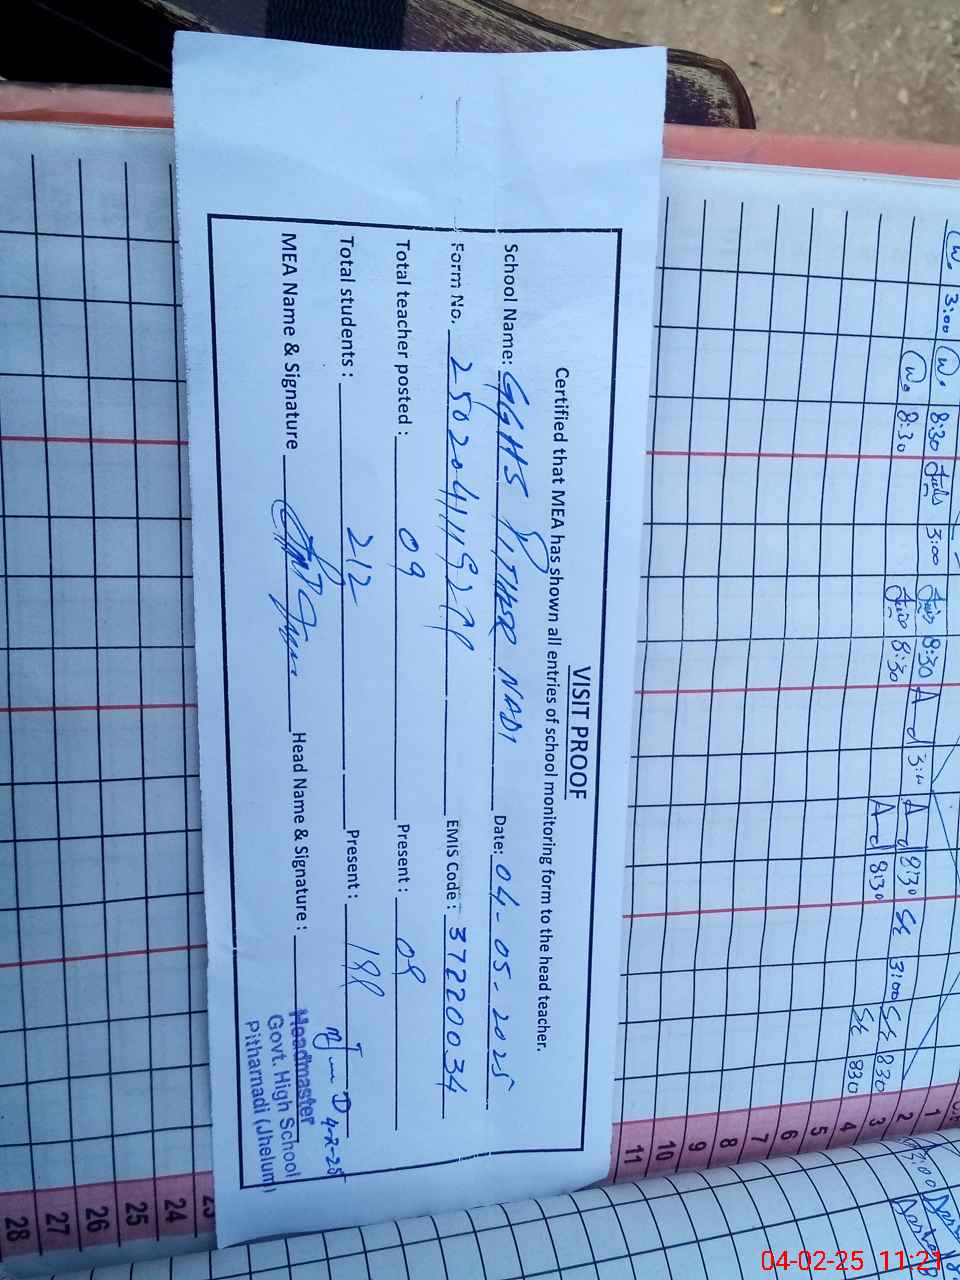 VISIT PROOF
Certified that MEA has shown all entries of school monitoring form to the head teacher.
School Name: GGHS PITHAR NADI Date: 04-05-2025
Form No. EMIS Code: 37220034
Total teacher posted: 09 Present: 08
Total students: 212 Present: 188
MEA Name & Signature Head Name & Signature:
4-2-25
Headmaster
Govt. High School
Pitharnadi (Jhelum)
W. 3:00 W. 8:30 3:00 8:30 A 3:00 A 8:30 3:00 830
W. 8:30 8:30 A 8:30 830
1
2
3
4
5
6
7
8
9
10
11
23
24
25
26
27
28
04-02-25 11:21